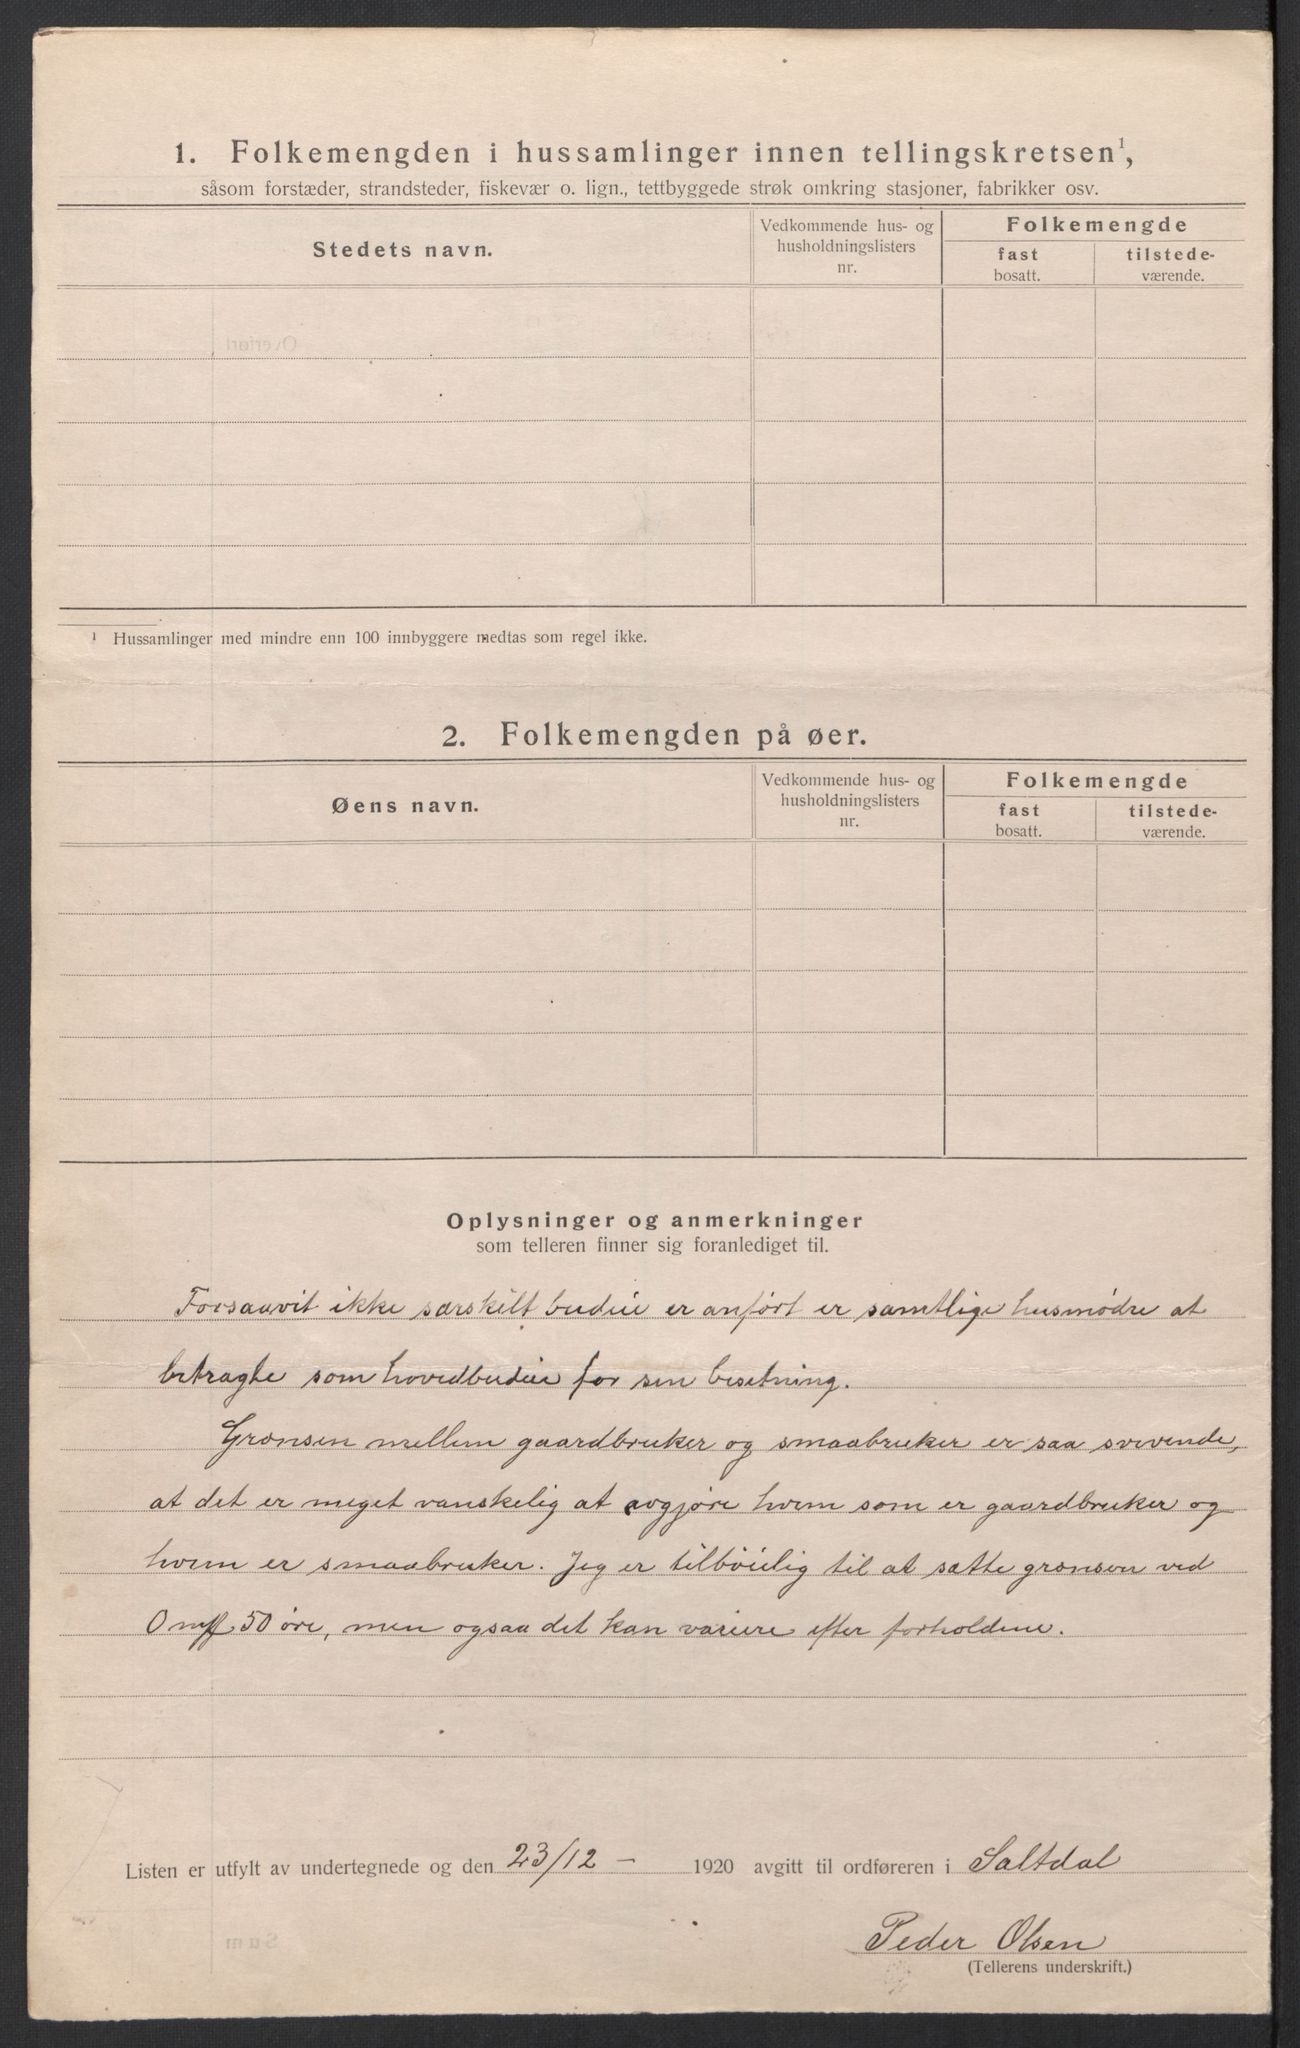 1. Folkemengden i hussamlinger innen tellingskretsen¹,
såsom forstæder, strandsteder, fiskevær o. lign., tettbyggede strøk omkring stasjoner, fabrikker osv.
Stedets navn.
Vedkommende hus- og
husholdningslisters
nr.
Folkemengde
fast
bosatt.
tilstede-
værende.
Overført
¹ Hussamlinger med mindre enn 100 innbyggere medtas som regel ikke.
2. Folkemengden på øer.
Øens navn.
Vedkommende hus- og
husholdningslisters
nr.
Folkemengde
fast
bosatt.
tilstede-
værende.
Oplysninger og anmerkninger
som telleren finner sig foranlediget til.
Forsaavit ikke særskilt budeie er anført er samtlige husmødre at
betragte som hovedbudeie for sin besetning.
Grænsen mellem gaardbruker og smaabruker er saa svevende,
at det er meget vanskelig at avgjøre hvem som er gaardbruker og
hvem er smaabruker. Jeg er tilbøielig til at sætte grænsen ved
0 mk 50 øre, men ogsaa det kan variere efter forholdene.
Listen er utfylt av undertegnede og den 23/12 – 1920 avgitt til ordføreren i Saltdal
Peder Olsen
(Tellerens underskrift.)
Sum